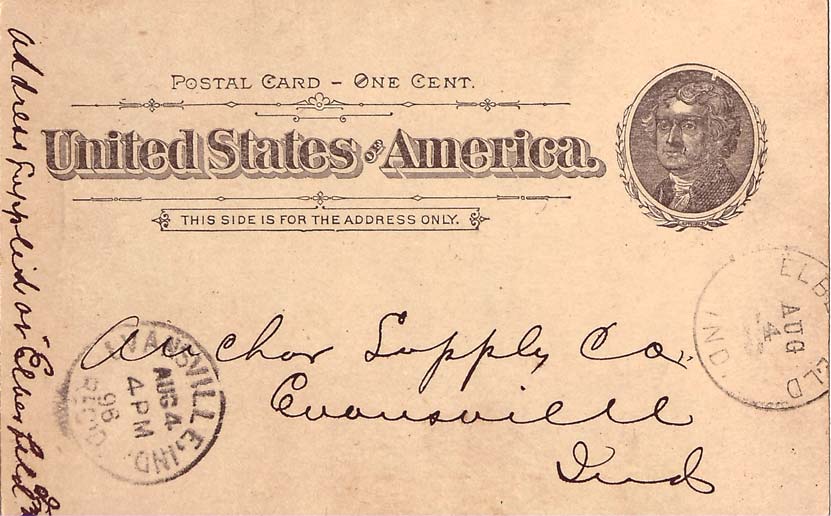 POSTAL CARD – ONE CENT.
United States OF America.
THIS SIDE IS FOR THE ADDRESS ONLY.
Anchor Supply Co.
Evansvill
Ind
EVANSVILLE, IND.
AUG 4
4 PM
96
REC'D.
ELB ELD
AUG
4
IND.
Address supplied at Elberfeld